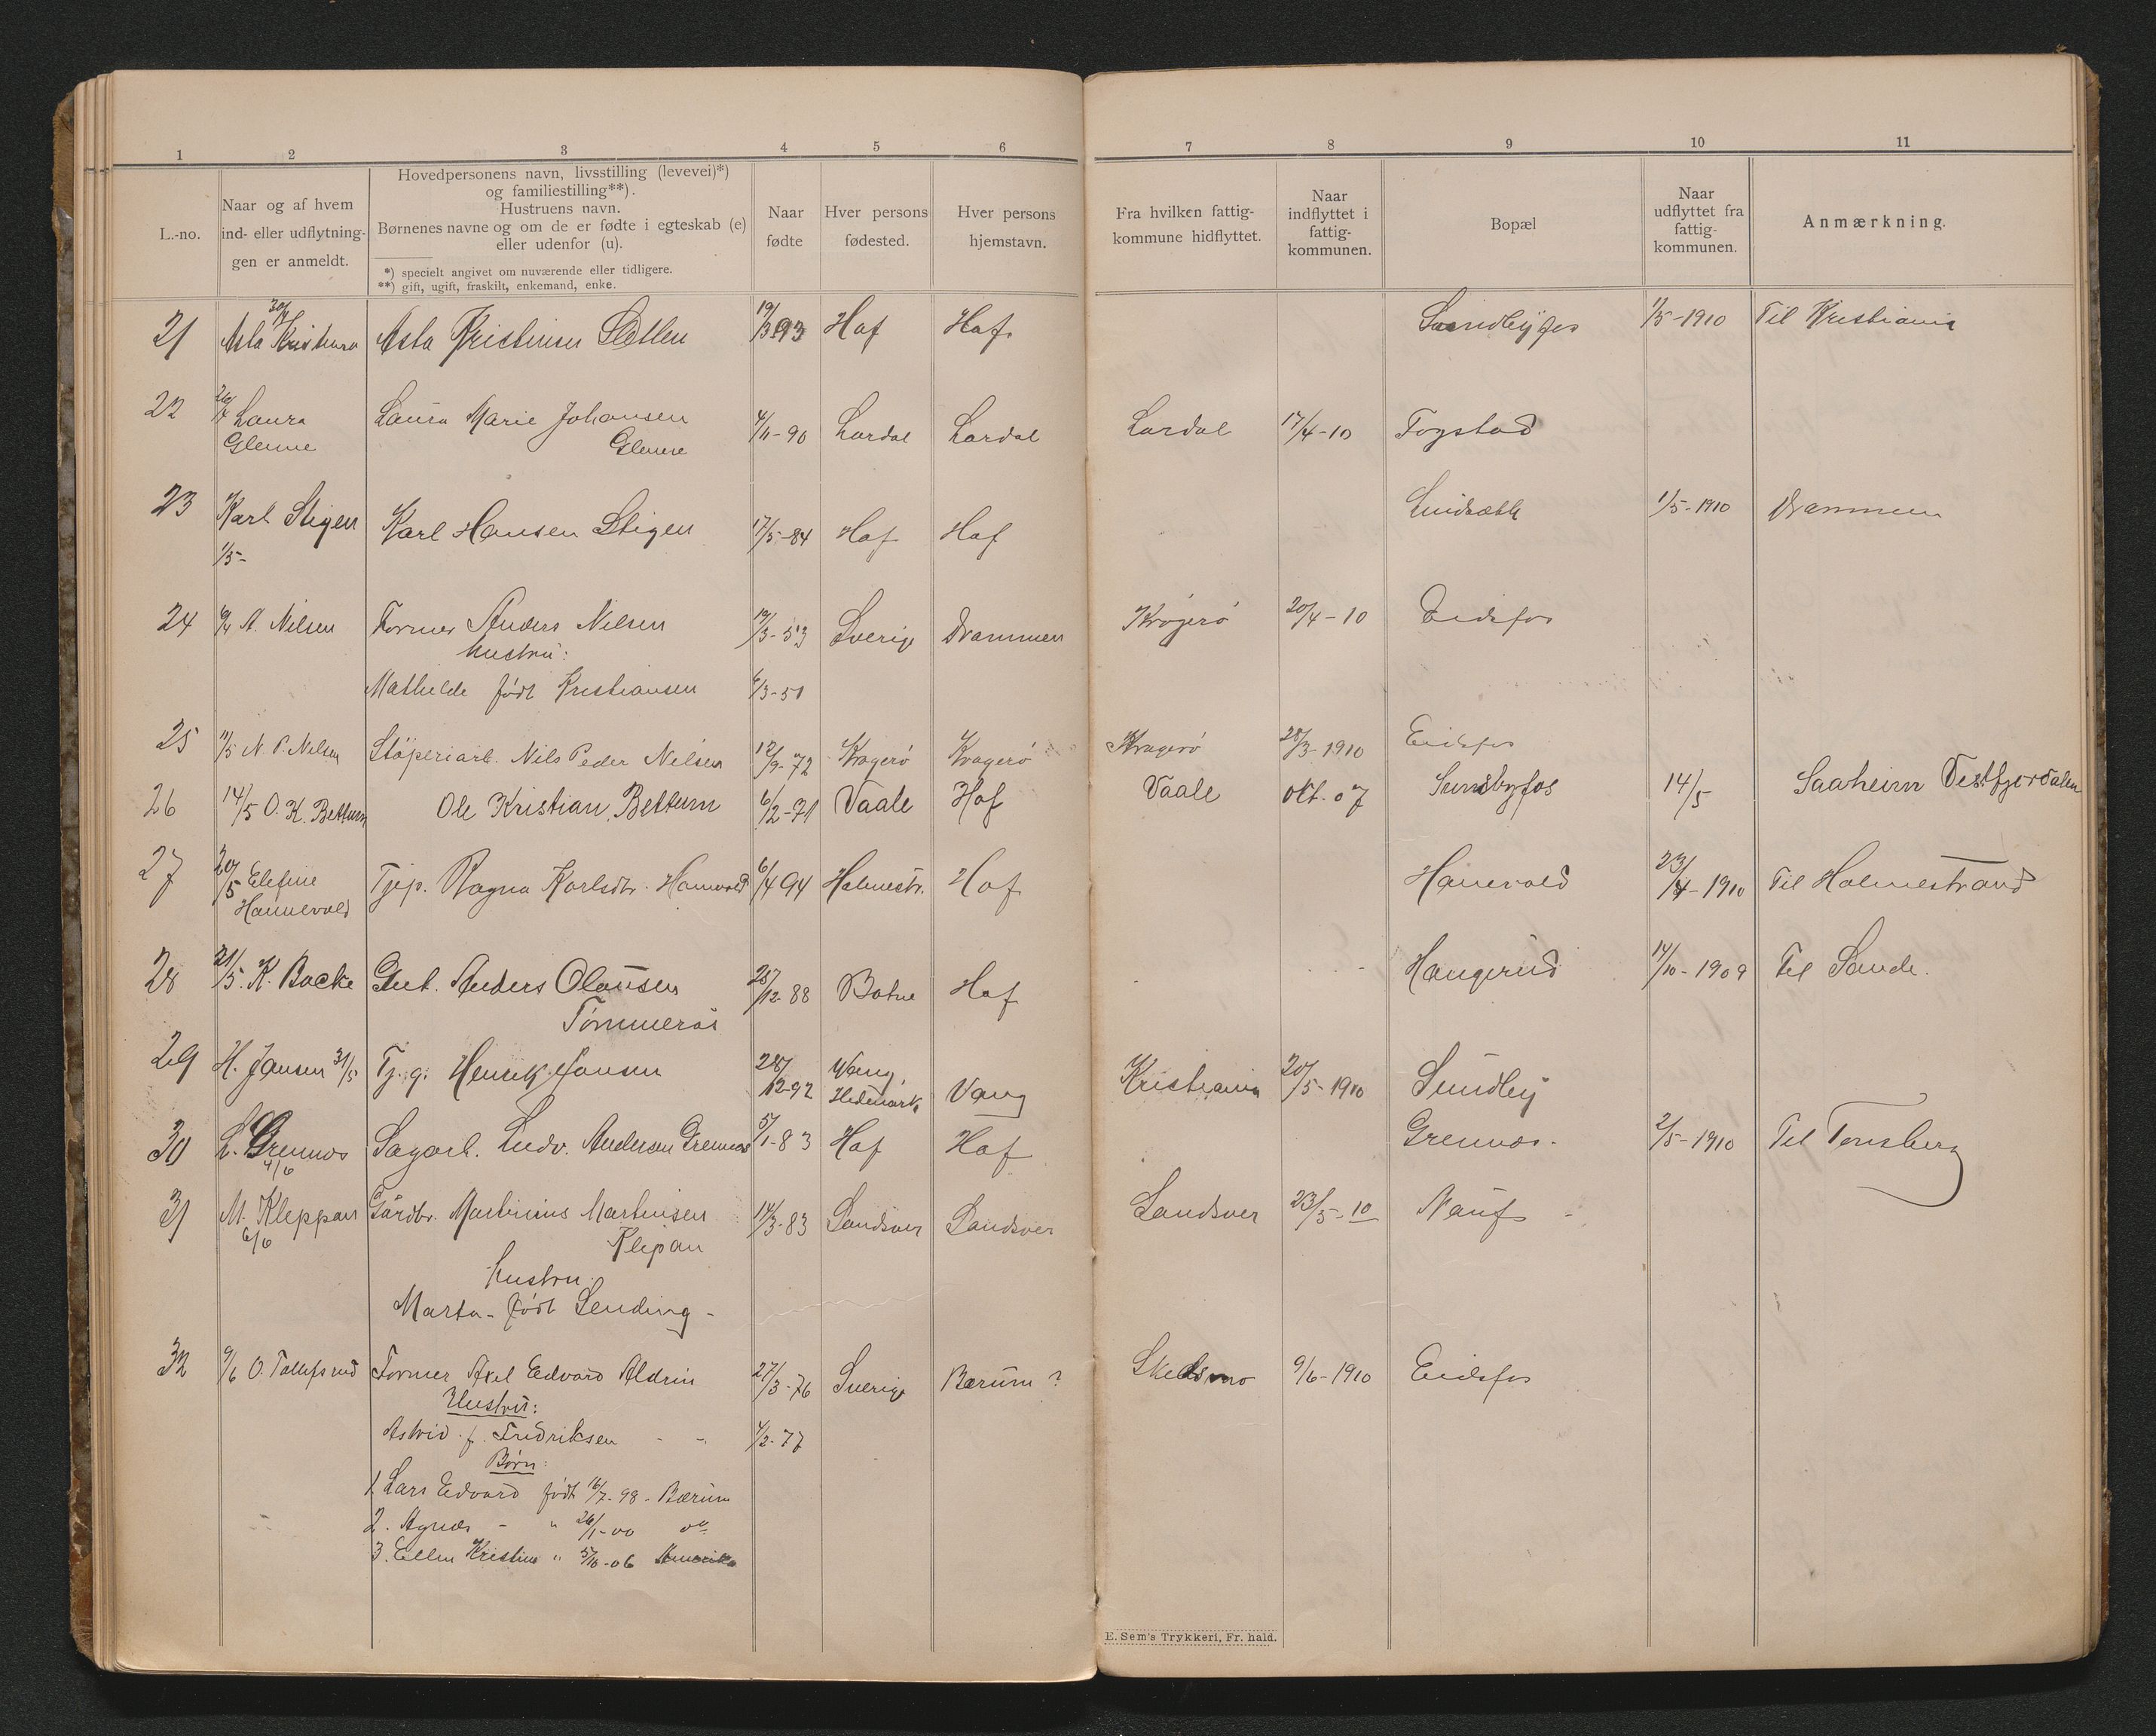 1 2 3 4 5 6 7 8 9 10 11
L.-no.
Naar og af hvem
ind- eller udflytnin-
gen er anmeldt.
Hovedpersonens navn, livsstilling (levevei)*)
og familiestilling**).
Hustruens navn.
Børnenes navne og om de er fødte i egteskab (e)
eller udenfor (u).
*) specielt angivet om nuværende eller tidligere.
**) gift, ugift, fraskilt, enkemand, enke.
Naar
fødte
Hver persons
fødested.
Hver persons
hjemstavn.
Fra hvilken fattig-
kommune hidflyttet.
Naar
indflyttet i
fattig-
kommunen.
Bopæl
Naar
udflyttet fra
fattig-
kommunen.
Anmærkning.
30/4
21 Asta Kristensen Asta Kristensen Sletten 19/3 93 Hof Hof 1/5-1910 Til Kristiania
22 26/4 Laura Laura Marie Johansen 4/11-90 Lardal Lardal Lardal 17/4-10 Fogstad
Glenne Glenne
23 Karl Stigen Karl Hansen Stigen 17/5-84 Hof Hof 1/5-1910 Drammen
1/5-
24 A. Nilsen Former Anders Nilsen 19/3-53 Sverige Drammen Krogerö 20/4-10 Eidsfos
Hustru:
Mathilde født Kristiansen 6/3-51
25 11/5 N. P. Nelsen Støperiarb. Nils Peder Nelsen 12/9-72 Kragerø Kragerø Kragerø 28/3-1910 Eidsfos
26 14/5 O. K. Bettum Ole Kristian Bettum 6/2-71 Vaale Hof Vaale Okt. 07 Sundbyfos 14/5 Saaheim Vestfjordalen
27 20/5 Elefine Tjep. Ragna Karlsdtr. Hanevold 6/4 94 Holmestr. Hof Hanevold 23/4-1910 Til Holmestrand
Hannevold
28 21/5. K. Backe Gut. Anders Olausen 28/12-88 Botne Hof Haugerud 14/10-1909 Til Sande.
Tømmerås
29 H. Jansen 31/5 Tj. g. Henrik Jansen 28/12-92 Wang Vang Kristiania 20/5-1910 Sundby
Hedmark
30 L. Grennes Sagarb. Ludv. Andersen Grennes 5/1-83 Hof Hof Grennes. 2/5-1910 Til Tønsberg
4/6
31 M. Kleppan Gårdbr. Martinius Martinsen 14/3-83 Sandsver Sandsver Sandsver 23/5-10
6/6 Klepan
Hustru
Marta - født Sending -
32 9/6 O. Tollefsrud Former Axel Edvard Aldrin 27/3-76 Sverige Bærum? Skedsmo 9/6-1910 Eidsfos
Hustru:
Astrid f. Fredriksen - - 4/2-77
Børn:
1. Lars Edvard født 16/7-98 - Bærum
2. Agnes - " 26/1-00 do
3. Ellen Kristine " 5/10-06 Amerika
E. Sem's Trykkeri, Fr. hald.